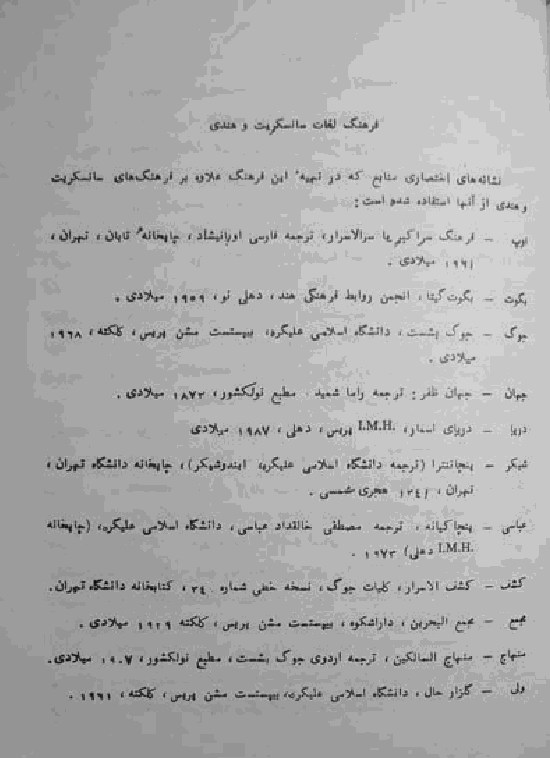 فرهنگ لغات سانسکریت و هندی
نشانه‌های اختصاری منابع که در تهیه این فرهنگ علاوه بر فرهنگ‌های سانسکریت
و هندی از آنها استفاده شده است:
اوپ — فرهنگ سراکبر یا سرالاسرار، ترجمه فارسی اوپانیشاد، چاپخانه تابان، تهران،
۱۹۶۱ میلادی.
بگوت — بگوت گیتا، انجمن روابط فرهنگی هند، دهلی نو، ۱۹۵۹ میلادی.
جوگ — جوگ بشست، دانشگاه اسلامی علیگره، بپتست مشن پریس، کلکته، ۱۹۶۸
میلادی.
جهان — جهان ظفر: ترجمه راما شمید، مطبع نولکشور، ۱۸۷۲ میلادی.
دریا — دریای اسمار، I.M.H. پریس، دهلی، ۱۹۸۷ میلادی
شیکر — پنچاتنترا (ترجمه دانشگاه اسلامی علیگره، ایندوشیکر)، چاپخانه دانشگاه تهران،
تهران، ۱۳۴۱ هجری شمسی.
عباسی — پنچاکیانه، ترجمه مصطفی خالقداد عباسی، دانشگاه اسلامی علیگره، (چاپخانه
I.M.H. دهلی) ۱۹۷۳.
کشف — کشف الاسرار، کلیات جوگ، نسخه خطی شماره ۲۴، کتابخانه دانشگاه تهران.
مجمع — مجمع البحرین، داراشکوه، بپتست مشن پریس، کلکته ۱۹۲۹ میلادی.
منهاج — منهاج السالکین، ترجمه اردوی جوگ بشست، مطبع نولکشور، ۱۹۰۷ میلادی.
ولی — گلزار حال، دانشگاه اسلامی علیگره، بپتست مشن پریس، کلکته، ۱۹۶۱.